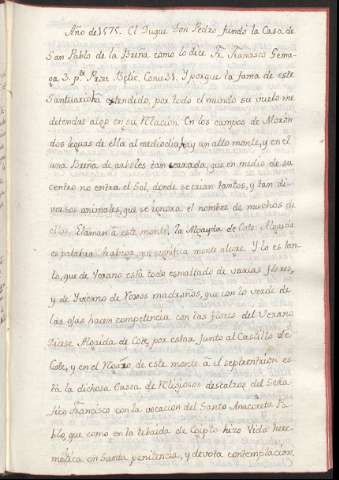 Año de 1575. El Duque Don Pedro, fundó la Casa de
San Pablo de la Breña como lo dice Fr. Francisco Gonza-
ga 3. pte. Prov. Betic. Conv. 31. Y porque la fama de este
Santuario ha estendido, por todo el mundo su vuelo me
detendré algo en su Relacion. En los campos de Morón
dos leguas de ella al mediodia hay un alto monte, y en el
una Breña de arboles tan cerrada, que en medio de su
centro no entra el Sol, donde se crian tantos, y tan di-
versos animales, que se ignora el nombre de muchos de
ellos. Llaman á este monte, la Algayda de Cote. Algaida
es palabra Arabiga, que significa monte alegre. Y lo es tan-
to, que de Verano está todo esmaltado de varias flores,
y de Invierno de Verdes madroños, que con lo verde de
las ojas hacen competencia con las flores del Verano
Dicese Algaida de Cote, por estar junto al Castillo de
Cote, y en el de este monte á el septentrion es
tá la dichosa Casa de Religiosos descalzos del Sera-
fico Francisco con la vocacion del Santo Anacoreta Pa-
blo, que como en la tebaida de Egipto hizo Vida here-
mitica en Santa penitencia, y devota contemplacion,